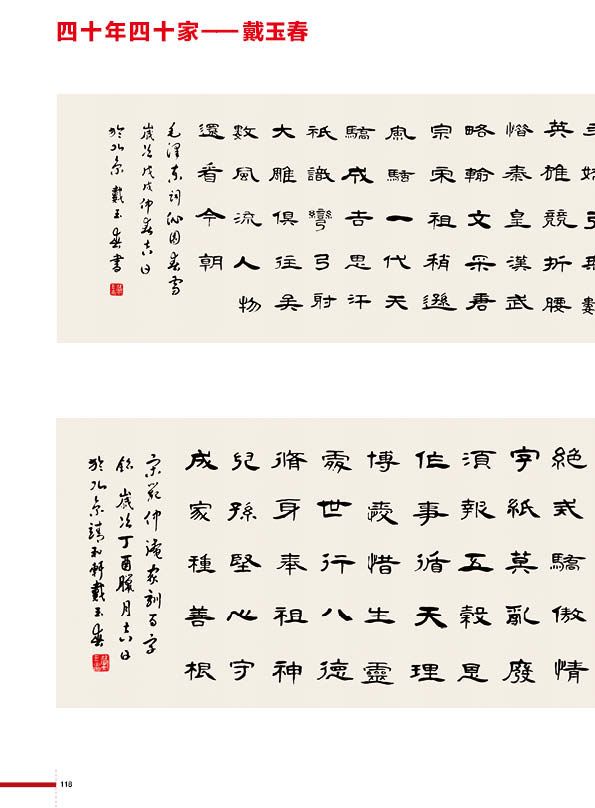 四十年四十家——戴玉春
英雄競折腰
惜秦皇漢武
略輸文采唐
宗宋祖稍遜
風騷一代天
驕成吉思汗
祇識彎弓射
大雕俱往矣
數風流人物
還看今朝
毛澤東詞沁園春雪
歲次戊戌仲春吉日
於北京戴玉春書
絕戒驕傲情
字紙莫亂廢
須報五穀恩
作事循天理
博愛惜生靈
處世行八德
脩身奉祖神
兒孫堅心守
成家種善根
宋范仲淹家訓百字
銘歲次丁酉臘月吉日
於北京靖和軒戴玉春
118